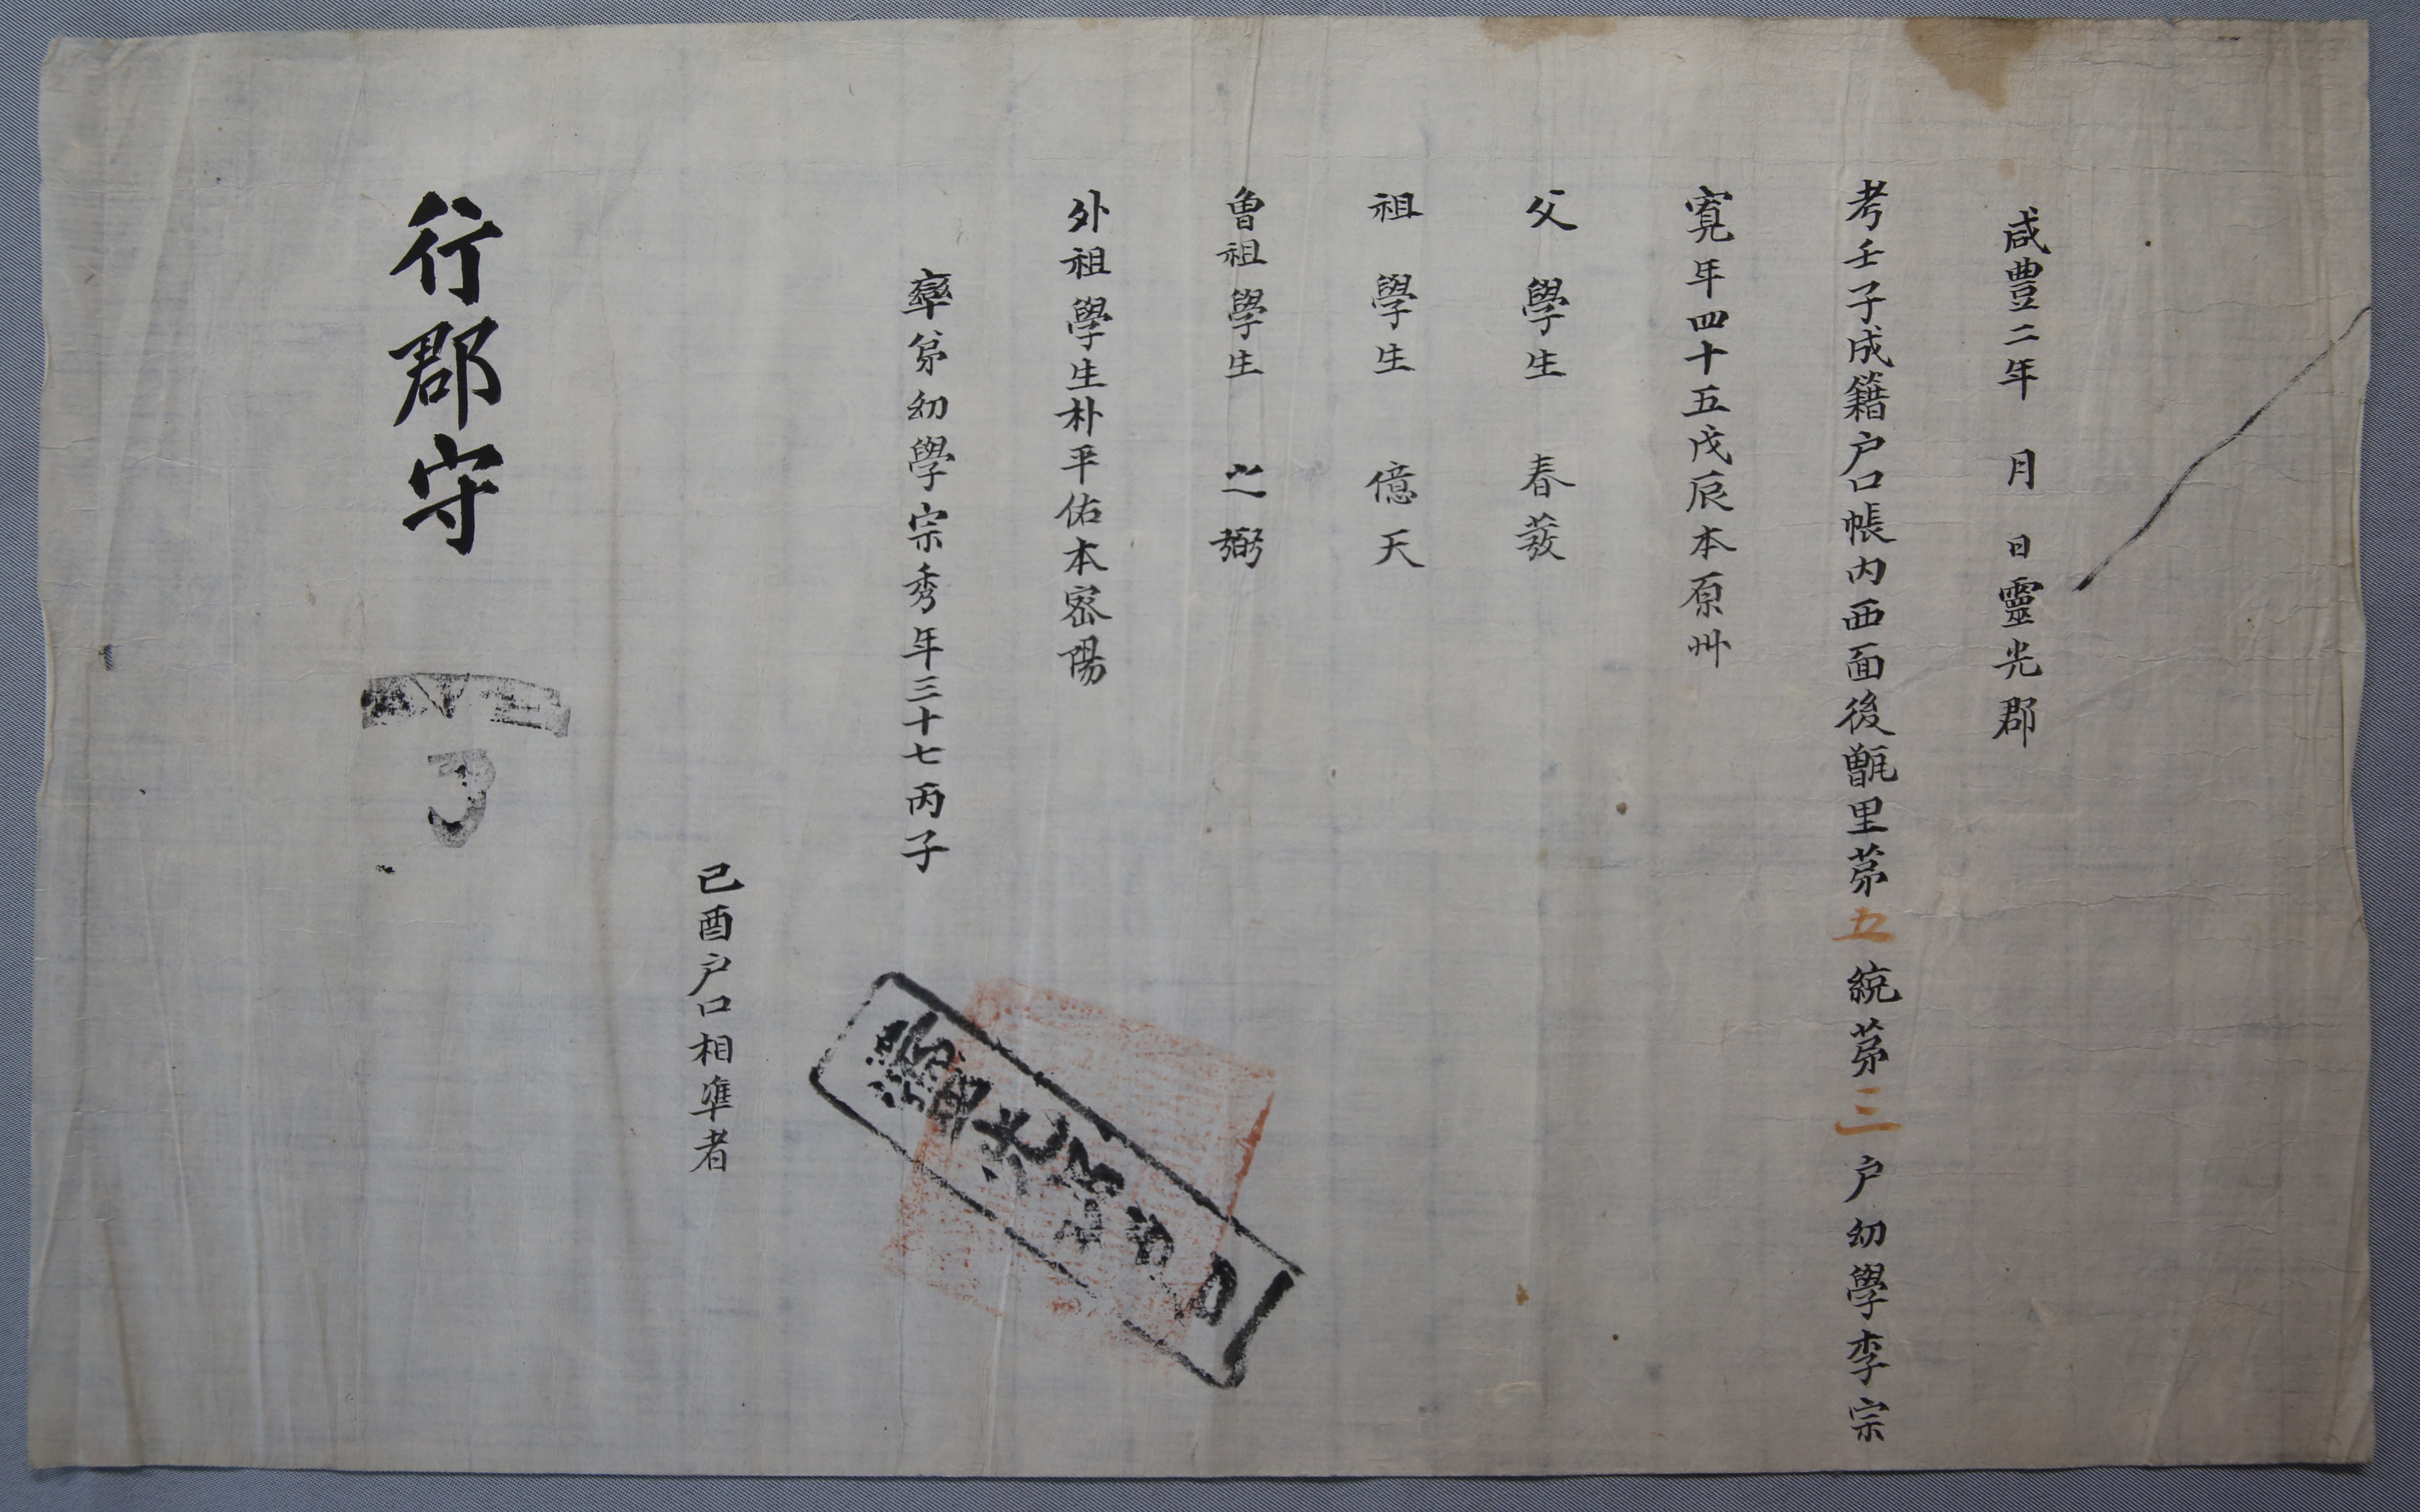 咸豊二年 月 日靈光郡
考壬子成籍户口帳内西面後甑里苐五統苐三户幼學李宗
寬年四十五戊辰本原州
父 學生 春茂
祖 學生 億天
曾祖學生 之弼
外祖學生朴平佑本密陽
率弟幼學宗秀年三十七丙子
己酉户口相準者
行郡守
靈光